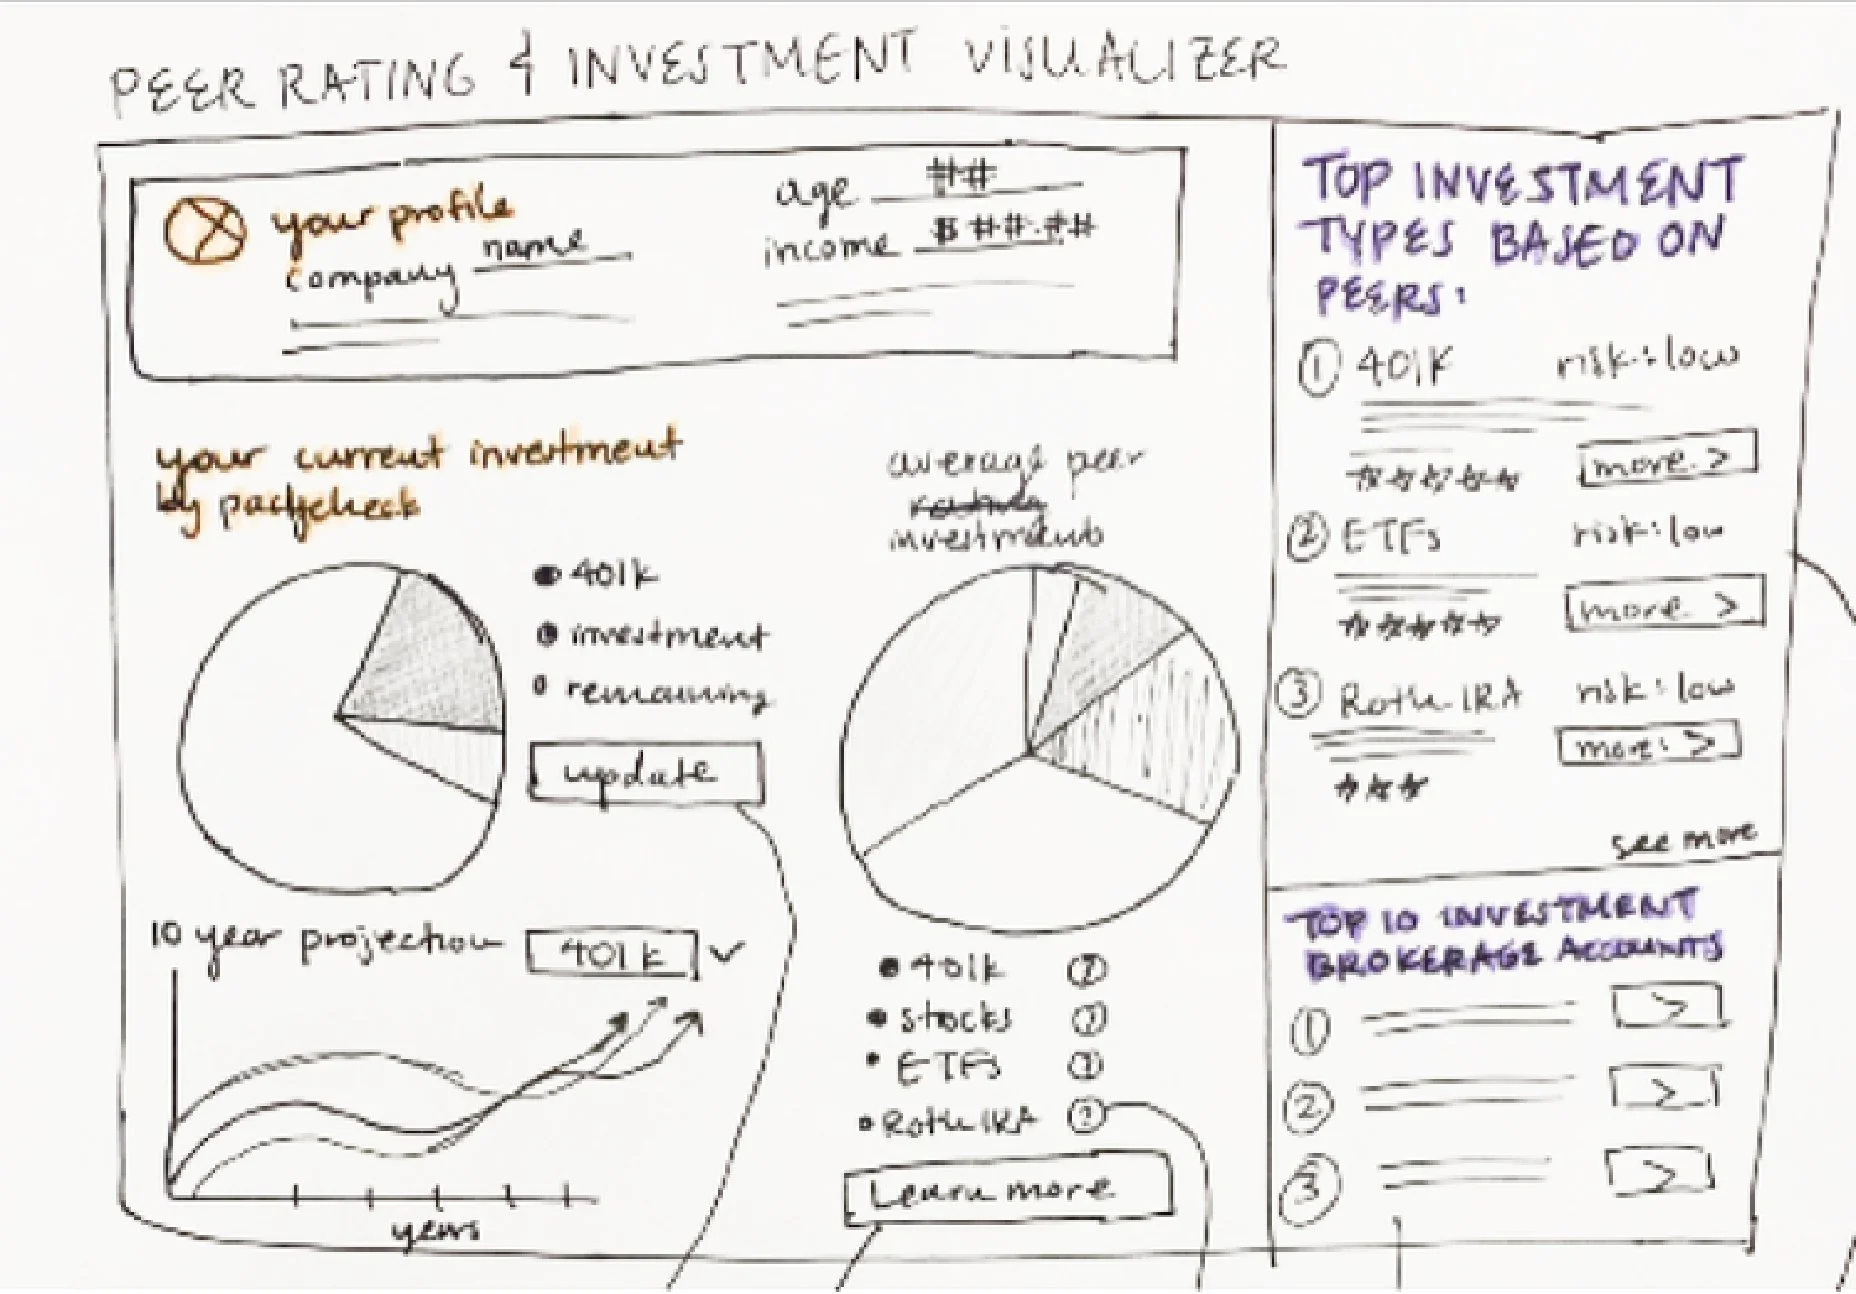 PEER RATING & INVESTMENT VISUALIZER
your profile
company name
age ##
income $ ##.##
your current investment
by paycheck
401k
investment
remaining
update
average peer
investments
401k ?
stocks ?
ETFs ?
Roth IRA ?
Learn more
10 year projection 401k
years
TOP INVESTMENT
TYPES BASED ON
PEERS:
1 401k risk: low
more >
2 ETFs risk: low
more >
3 Roth IRA risk: low
more >
see more
TOP 10 INVESTMENT
BROKERAGE ACCOUNTS
1 >
2 >
3 >